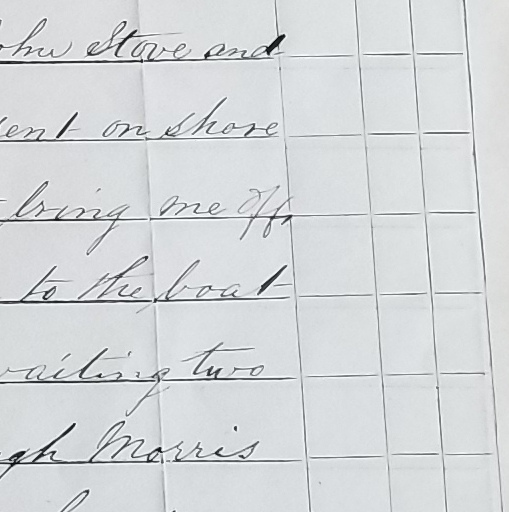 ohn Stove and
ent on shore
bring me off
to the boat
waiting two
gh Morris